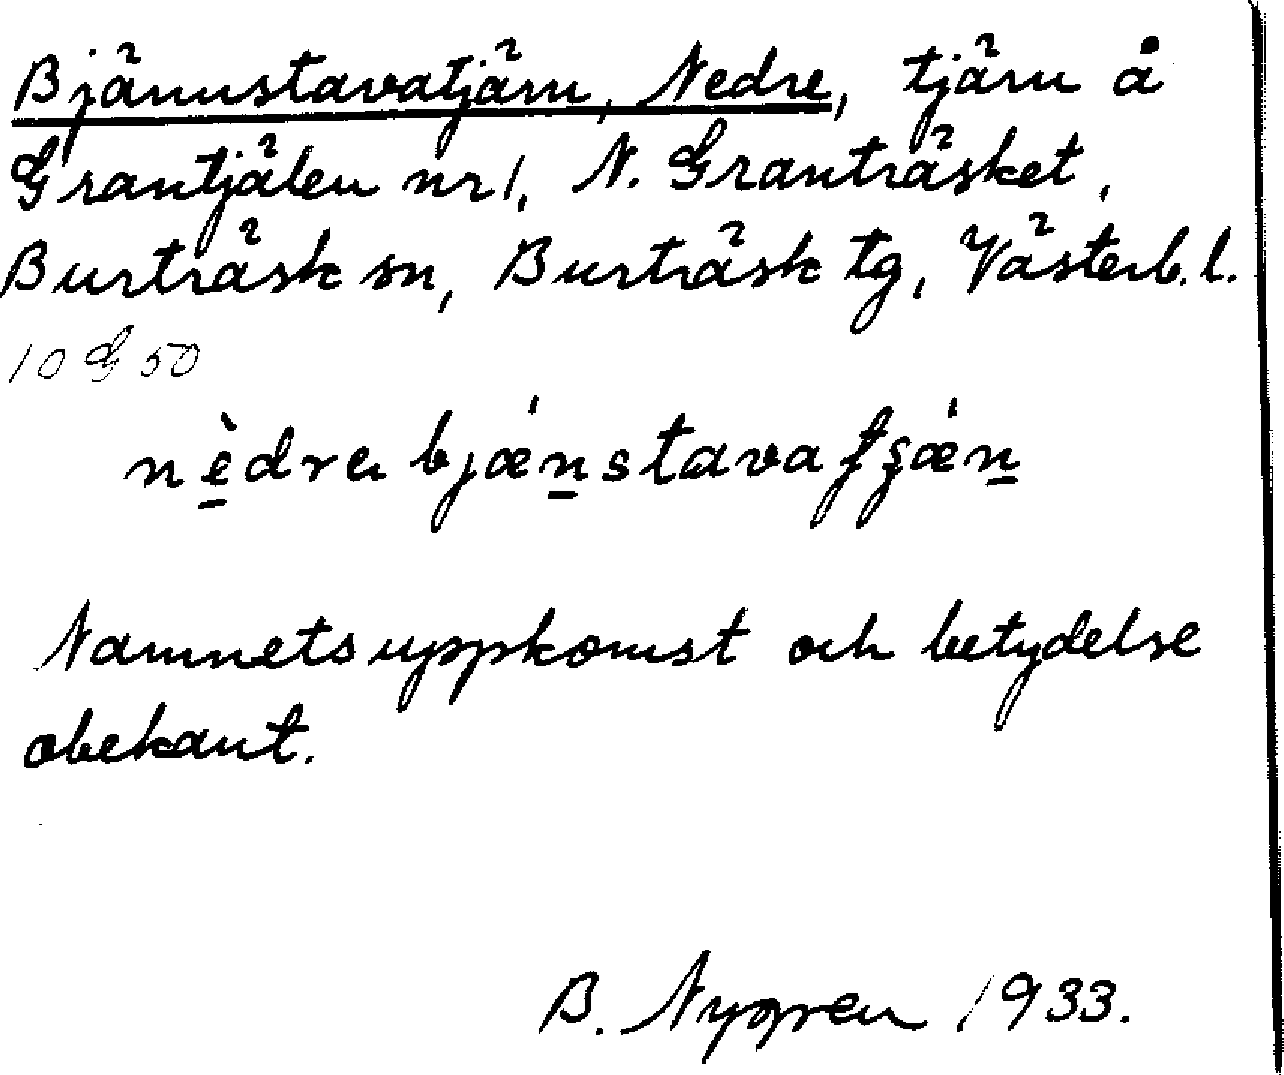 Bjännstavatjärn, Nedre, tjärn å
Grantjälen nr 1, N. Granträsket,
Burträsk sn, Burträsk tg, Västerb. l.
10 G 50
nèdra bjæ´nstava tʂæ´n
Namnets uppkomst och betydelse
obekant.
B. Nygren 1933.